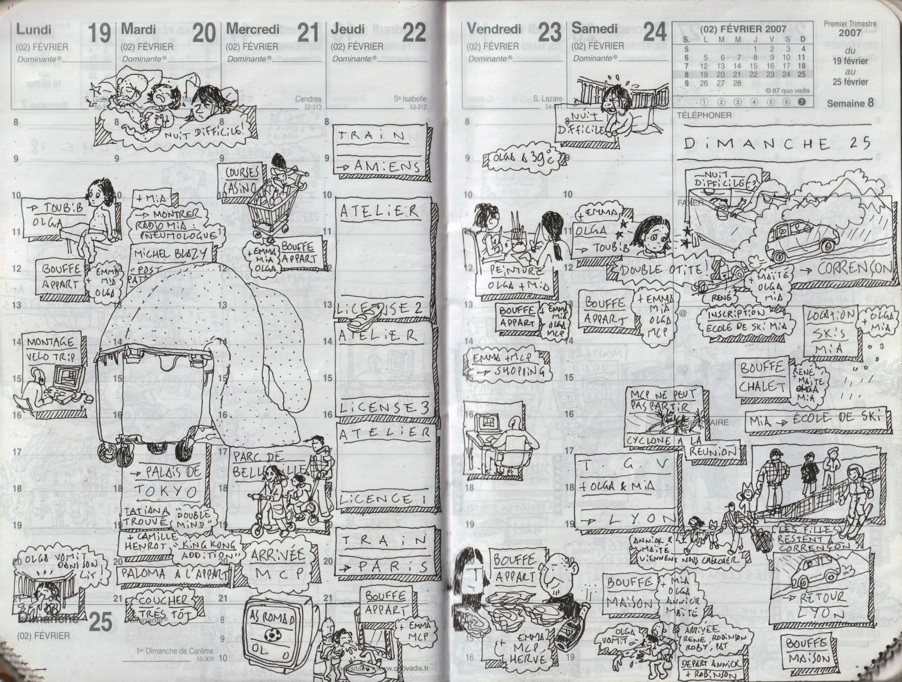 Lundi 19
(02) FÉVRIER
Dominante
Mardi 20
(02) FÉVRIER
Dominante
Mercredi 21
(02) FÉVRIER
Dominante
Cendres
Jeudi 22
(02) FÉVRIER
Dominante
Sᵉ Isabelle
Vendredi 23
(02) FÉVRIER
Dominante
S. Lazare
Samedi 24
(02) FÉVRIER
Dominante
(02) FÉVRIER 2007
S. L M M J V S D
5 1 2 3 4
6 5 6 7 8 9 10 11
7 12 13 14 15 16 17 18
8 19 20 21 22 23 24 25
9 26 27 28
© 87 quo vadis
1 2 3 4 5 6 7
Premier Trimestre
2007
du
19 février
au
25 février
Semaine 8
TÉLÉPHONER
NUIT DIFFICILE!
→ TOUBIB
OLGA
BOUFFE
APPART
+ EMMA
MIA
OLGA
MONTAGE
VELO TRIP
OLGA VOMIT
DANS SON
LIT
Dimanche 25
(02) FÉVRIER
1ᵉʳ Dimanche de Carême
+ MIA
→ MONTRER
RADIO MIA
PNEUMOLOGUE
MICHEL BLAZY
→ PALAIS DE
TOKYO
TATIANA
TROUVÉ
"DOUBLE
MIND"
+ CAMILLE
HENROT
"KING KONG
ADDITION"
PALOMA A L'APPART
COUCHER
TRES TÔT
COURSES
CASINO
+ EMMA
MIA
OLGA
BOUFFE
APPART
PARC DE
BELLEVILLE
ARRIVÉE
MCP
AS ROMA 0
OL 0
TRAIN
→ AMIENS
ATELIER
LICENSE 2
ATELIER
LICENSE 3
ATELIER
LICENCE 1
TRAIN
→ PARIS
BOUFFE
APPART
+ EMMA
MCP
www.quovadis.fr
OLGA à 39°C
PEINTURE
OLGA + MIA
BOUFFE
APPART
+ EMMA
MIA
OLGA
MCP
EMMA + MCP
→ SHOPPING
BOUFFE
APPART
+ EMMA
MCP
HERVE
NUIT
DIFFICILE
+ EMMA
OLGA
→ TOUBIB
DOUBLE OTITE!
BOUFFE
APPART
+ EMMA
MIA
OLGA
MCP
MCP NE PEUT
PAS PARTIR
CYCLONE A LA
REUNION
T.G.V
+ OLGA & MIA
→ LYON
ANNICK &
MAITE
VIENNENT NOUS CHERCHER
BOUFFE
MAISON
MIA
OLGA
ANNICK
MAITE
OLGA
VOMIT
DIMANCHE 25
NUIT
DIFFICILE
→ CORRENÇON
RENÉ
MAÏTÉ
OLGA
MIA
INSCRIPTION
ECOLE DE SKI MIA
LOCATION
SKIS
MIA
+ OLGA
MIA
BOUFFE
CHALET
RENÉ
MAITE
OLGA
MIA
MIA → ECOLE DE SKI
LES FILLES
RESTENT A
CORRENÇON
→ RETOUR
LYON
ARRIVÉE
RENE ROBINSON
DEPART ANNICK
+ ROBINSON
BOUFFE
MAISON